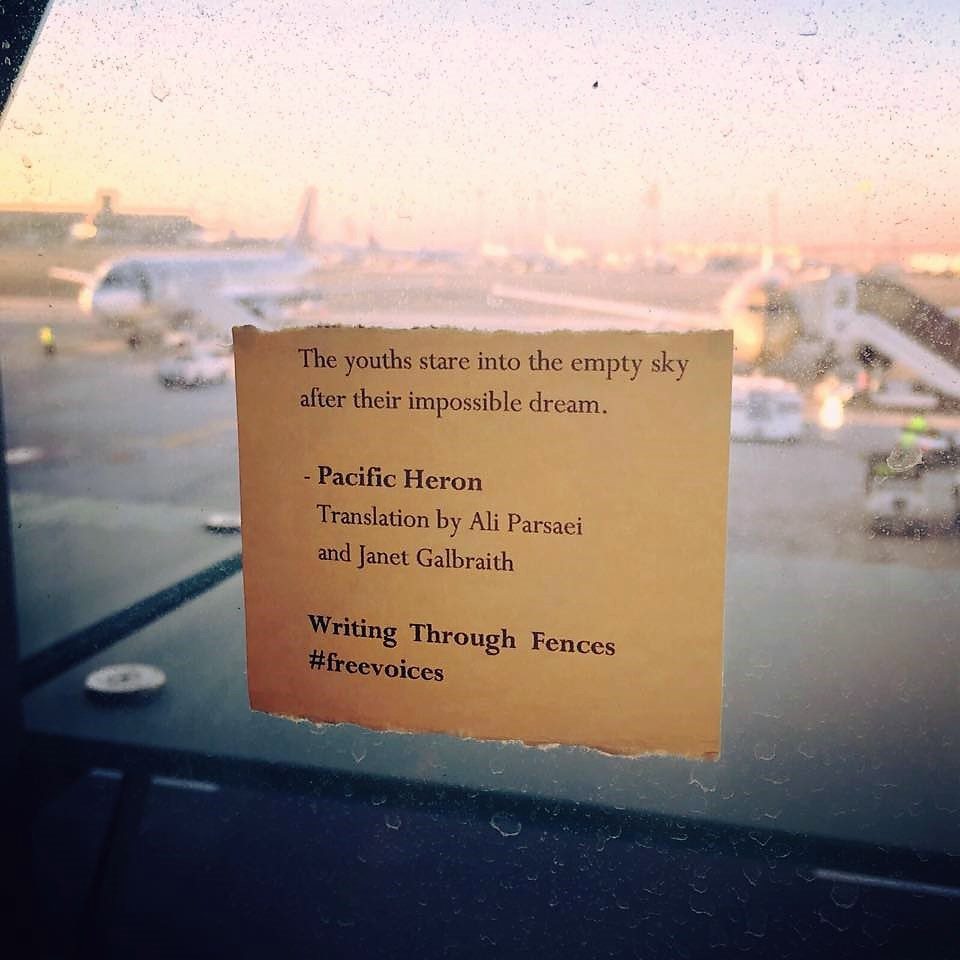 The youths stare into the empty sky
after their impossible dream.
- Pacific Heron
Translation by Ali Parsaei
and Janet Galbraith
Writing Through Fences
#freevoices